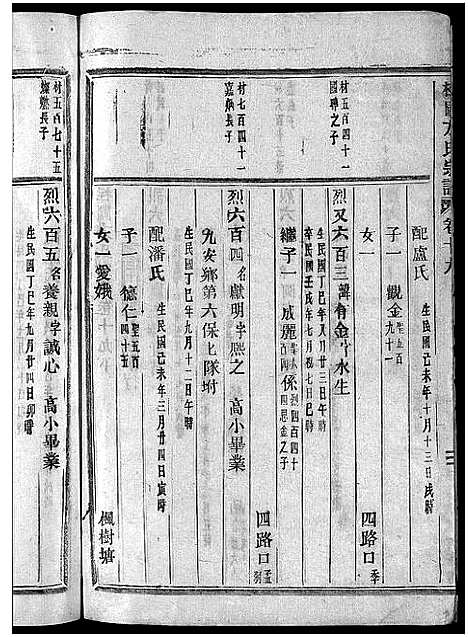 方氏宗譜 卷十九
配盧氏 生民國己未年十月十三日戌時
子一 觀金 聖五百九十一
女一 四路口 季
村五百四十一
國珅之子
烈又六百三 諱有金 字水生
生民國丁巳年八月廿三日午時
卒民國壬戌年七月初七日巳時
繼子一 威麗 係烈四百四十四思金之子
四路口 孟
村七百四十一
嘉炳長子
烈六百四 名獻明 字熙之 高小畢業
九安鄉第六保上隊坿
生民國丁巳年九月十二日午時
配潘氏 生民國己未年三月廿四日寅時
子一 德仁 聖五百四十五
女一愛娥 楓樹塘
村五百七十五
燦燃長子
烈六百五 名養親 字誠心 高小畢業
生民國丁巳年九月廿四日卯時